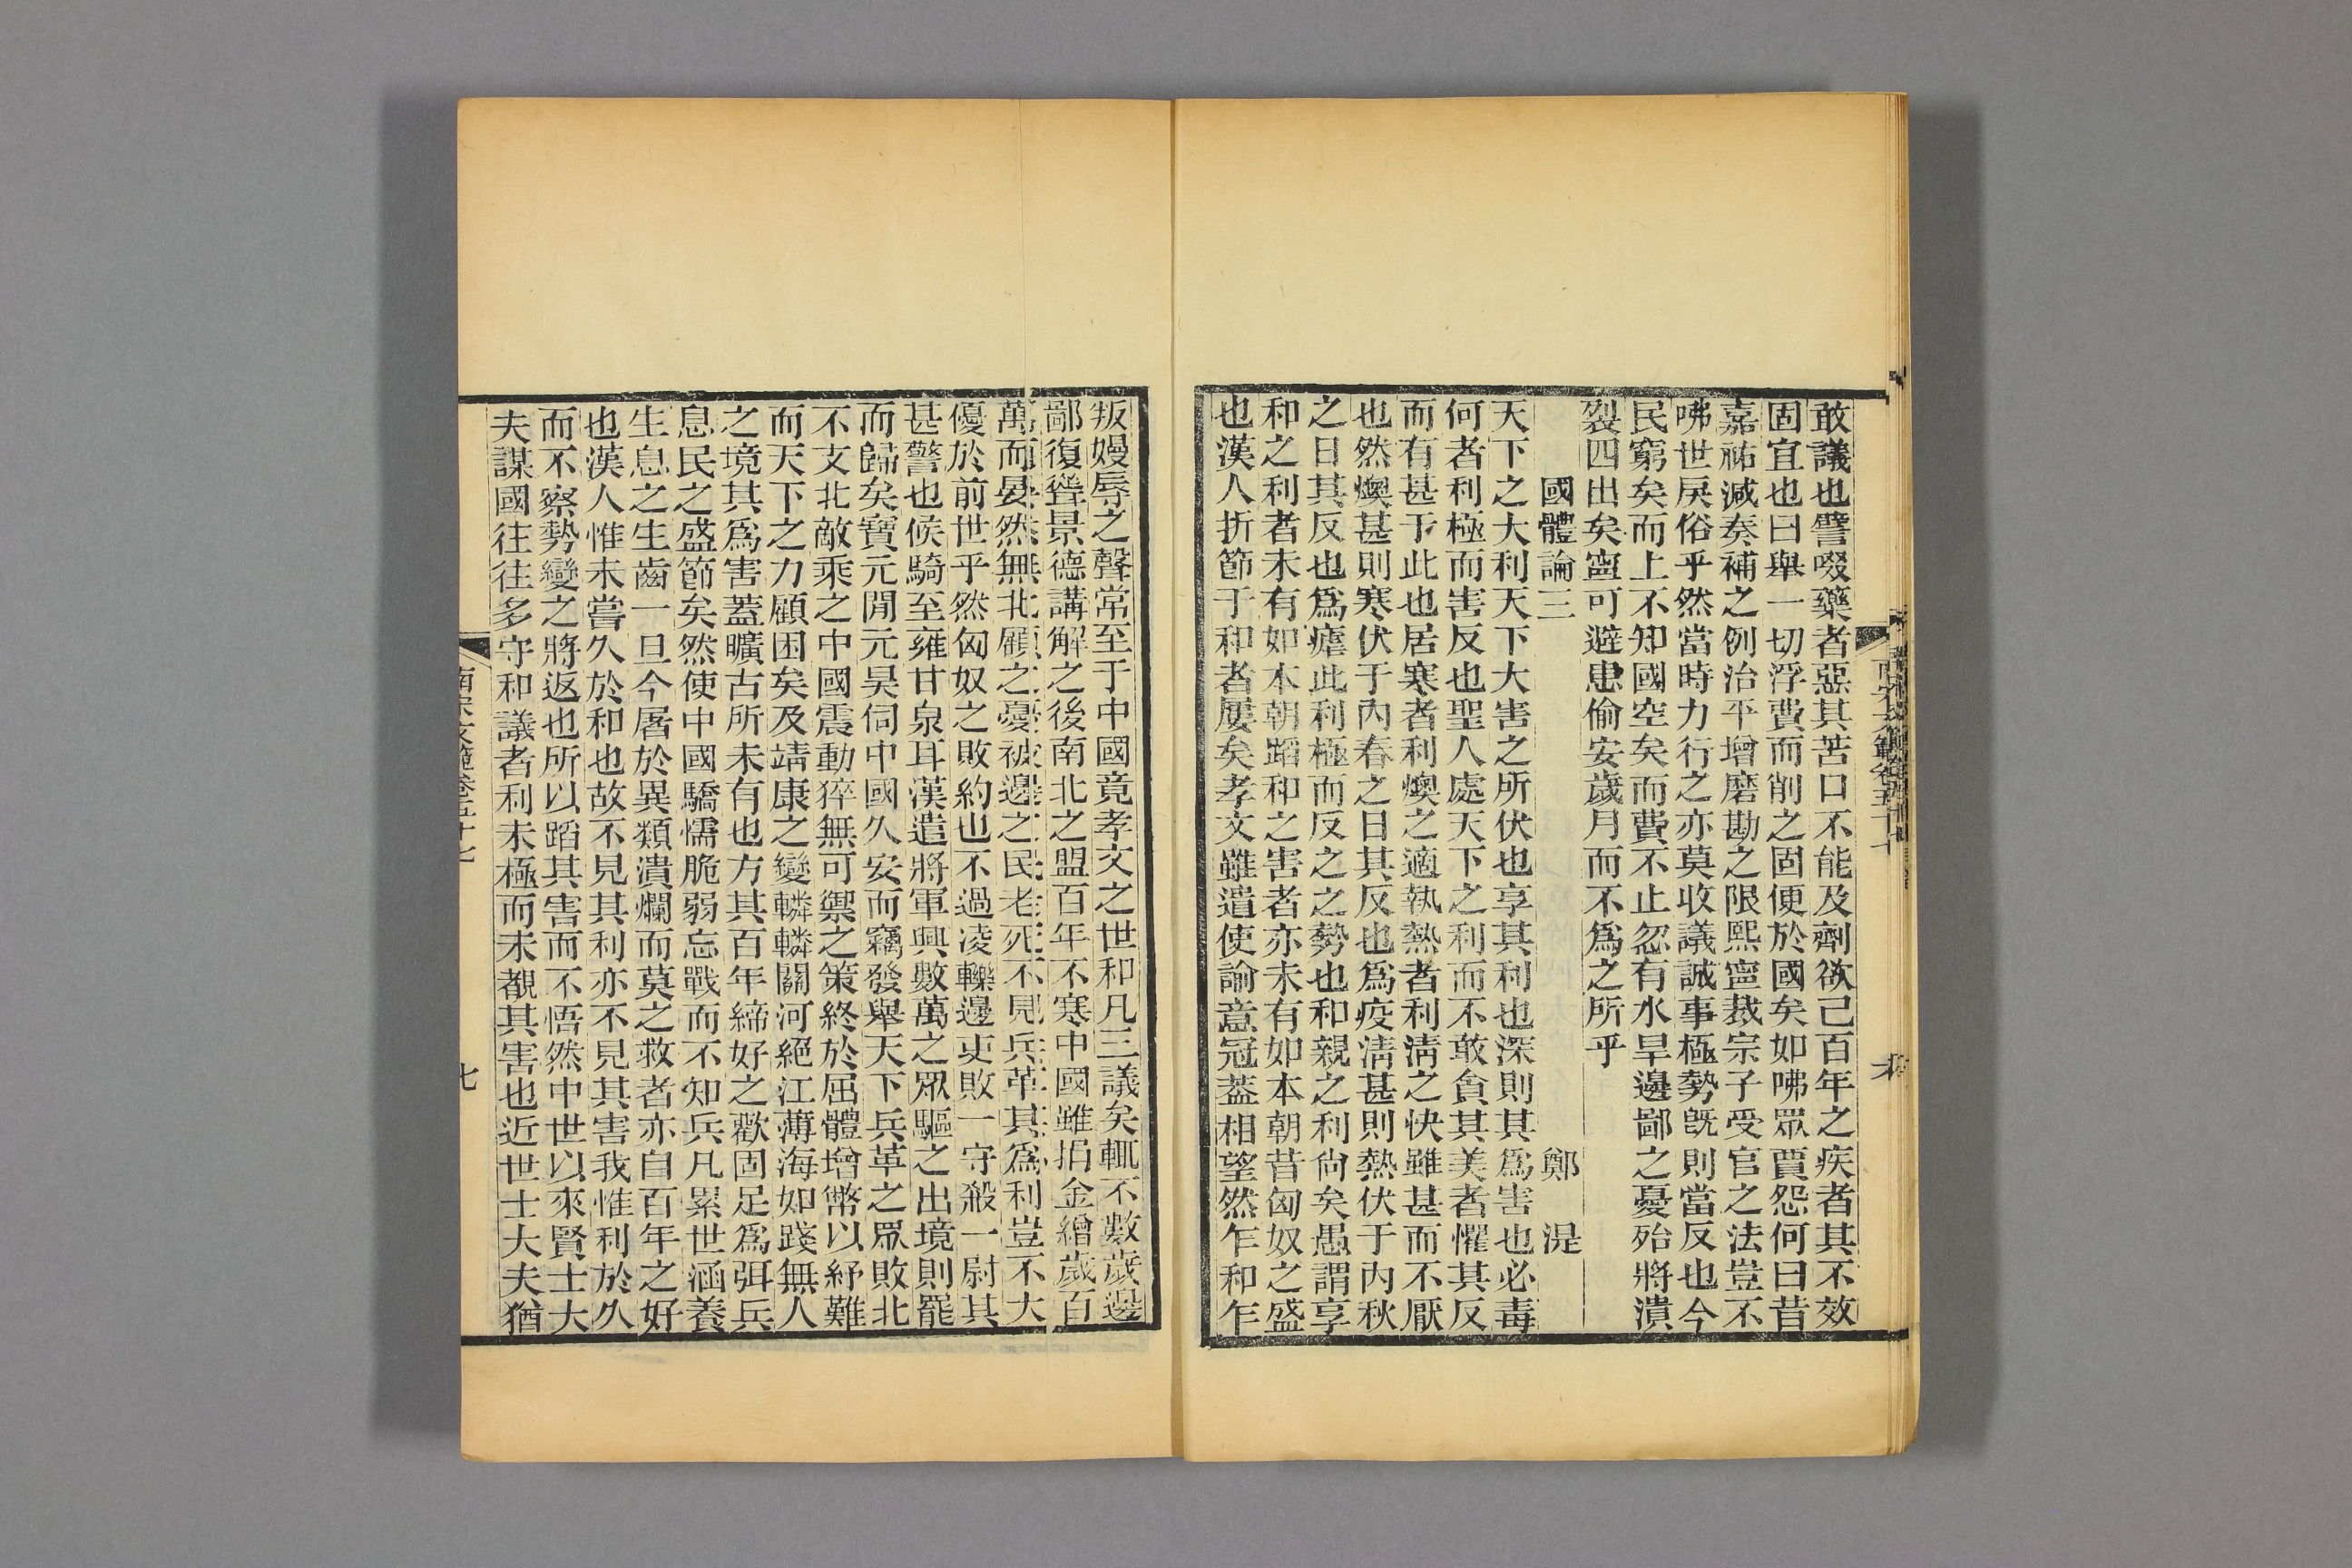 敢議也譬啜藥者惡其苦口不能及劑欲己百年之疾者其不效
固宜也曰舉一切浮費而削之固便於國矣如咈眾賈怨何曰昔
嘉祐減奏補之例治平增磨勘之限熙寧裁宗子受官之法豈不
咈世戾俗乎然當時力行之亦莫收議誠事極勢旣則當反也今
民窮矣而上不知國空矣而費不止忽有水旱邊鄙之憂殆將潰
裂四出矣寧可避患偷安歲月而不爲之所乎
國體論三 鄭湜
天下之大利天下大害之所伏也享其利也深則其爲害也必毒
何者利極而害反也聖人處天下之利而不敢貪其美者懼其反
而有甚于此也居寒者利燠之適執熱者利淸之快雖甚而不厭
也然燠甚則寒伏于內春之日其反也爲疫淸甚則熱伏于內秋
之日其反也爲瘧此利極而反之之勢也和親之利尙矣愚謂享
和之利者未有如本朝蹈和之害者亦未有如本朝昔匈奴之盛
也漢人折節于和者屢矣孝文雖遣使諭意冠蓋相望然乍和乍
叛嫚辱之聲常至于中國竟孝文之世和凡三議矣輒不數歲邊
鄙復聳景德講解之後南北之盟百年不寒中國雖捐金繒歲百
萬而晏然無北顧之憂被邊之民老死不見兵革其爲利豈不大
優於前世乎然匈奴之敗約也不過凌轢邊吏敗一守殺一尉其
甚警也候騎至雍甘泉耳漢遣將軍興數萬之眾驅之出境則罷
而歸矣寶元閒元昊伺中國久安而竊發舉天下兵革之眾敗北
不支北敵乘之中國震動猝無可禦之策終於屈體增幣以紓難
而天下之力顧困矣及靖康之變轔轔關河絕江薄海如踐無人
之境其爲害蓋曠古所未有也方其百年締好之歡固足爲弭兵
息民之盛節矣然使中國驕懦脆弱忘戰而不知兵凡累世涵養
生息之生齒一旦今屠於異類潰爛而莫之救者亦自百年之好
也漢人惟未嘗久於和也故不見其利亦不見其害我惟利於久
而不察勢變之將返也所以蹈其害而不悟然中世以來賢士大
夫謀國往往多守和議者利未極而未覩其害也近世士大夫猶
南宋文範卷五十七
七